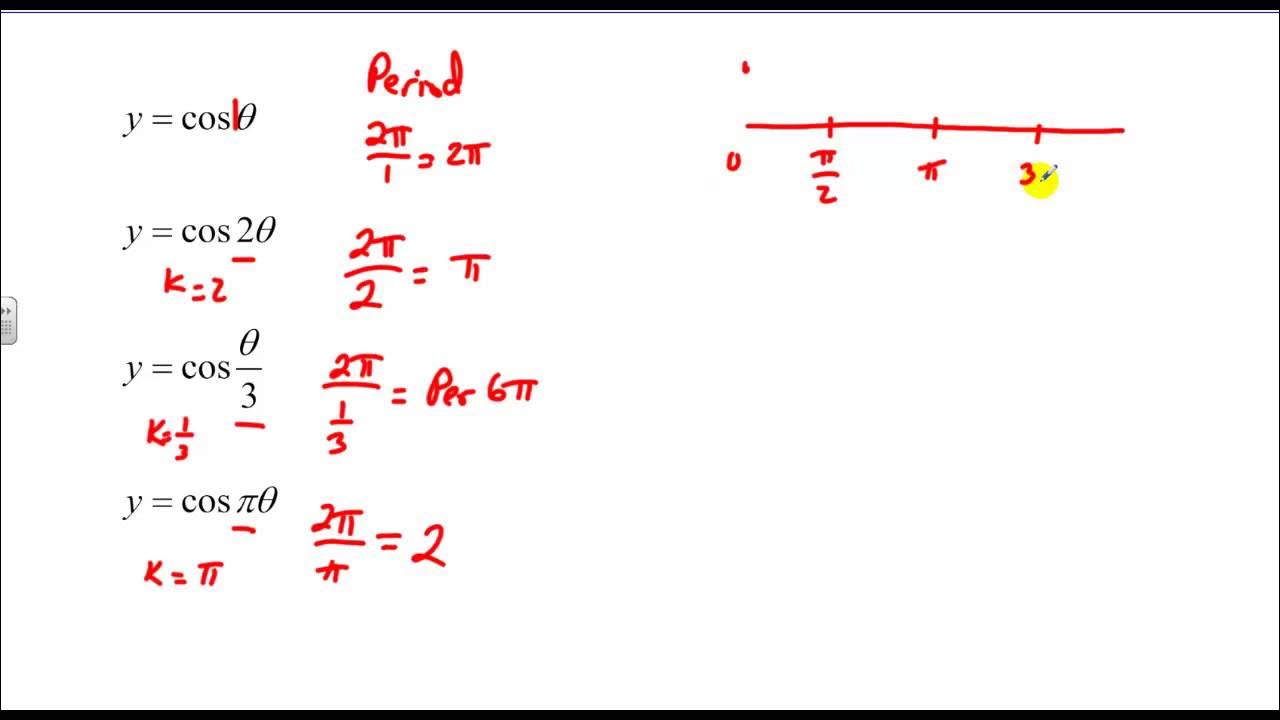 Period
y = cos1θ
2π/1 = 2π
y = cos 2θ
K = 2
2π/2 = π
y = cos θ/3
K = 1/3
2π/(1/3) = Per 6π
y = cos πθ
K = π
2π/π = 2
0 π/2 π 3